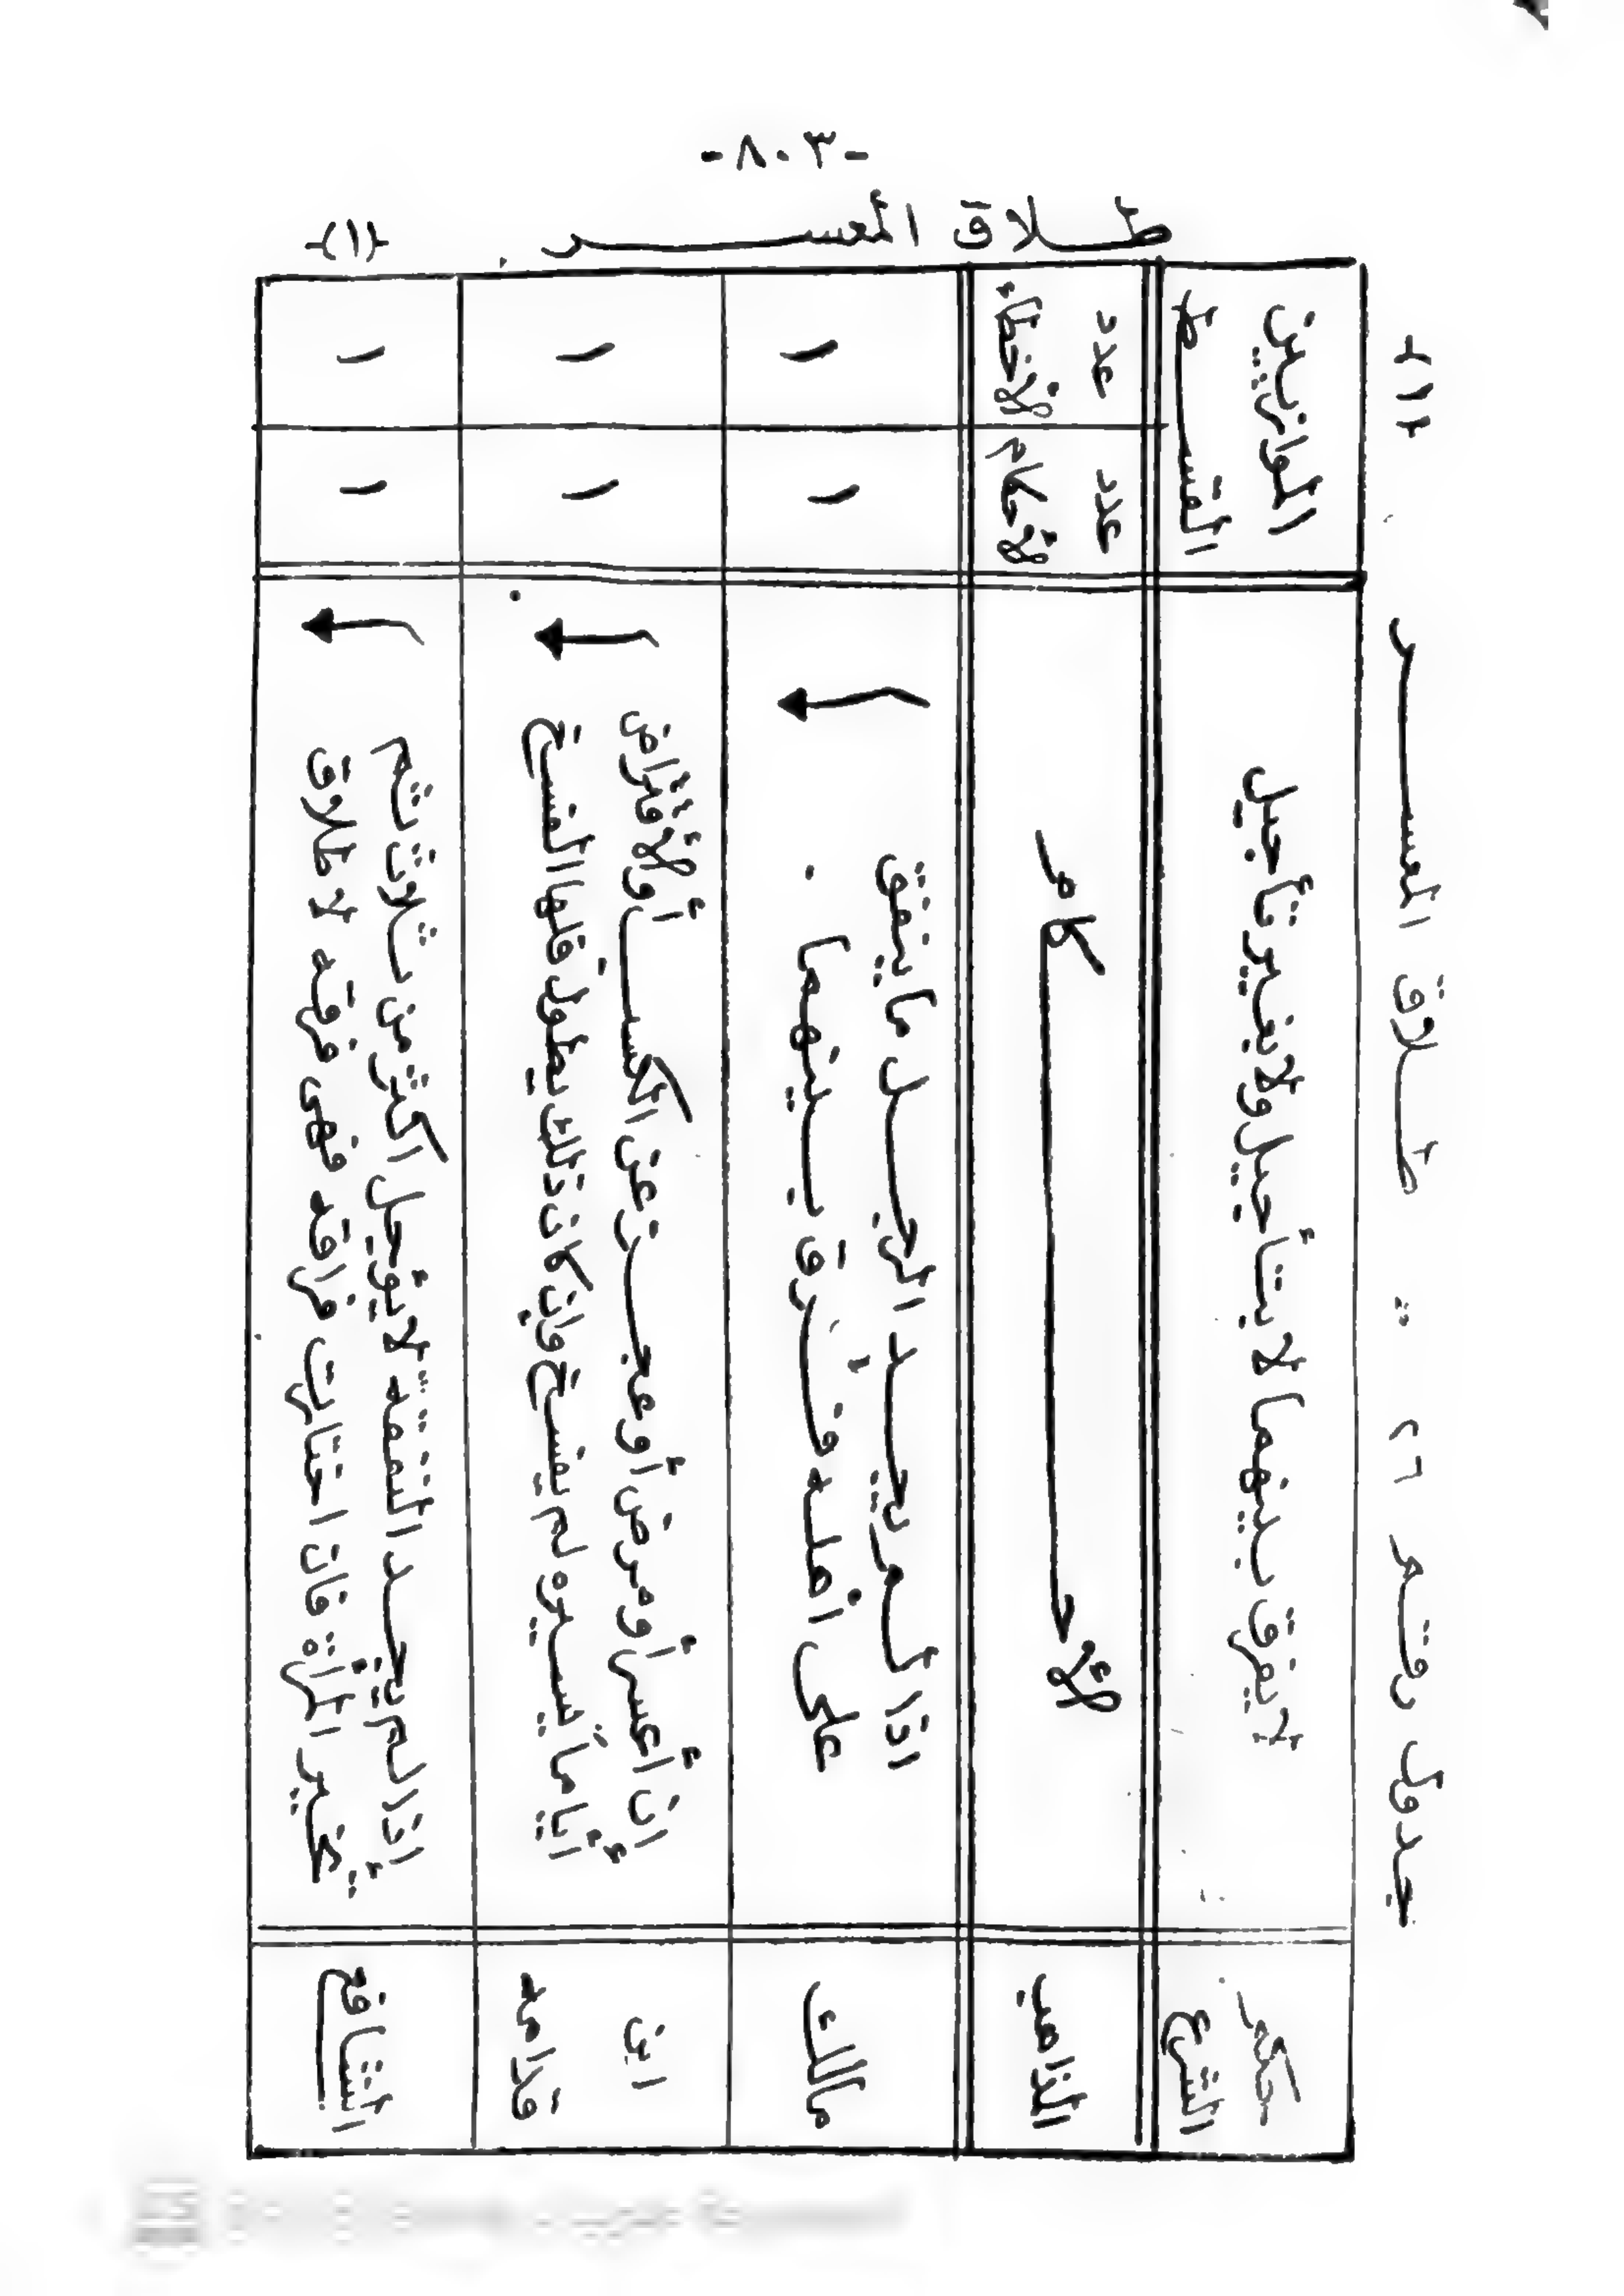 -٨٠٣-
طلاق المعسر
جدول رقم ٢٦ .. طلاق المعسر
حكم الشرع
لا يفرق بينهما لا بتأجيل ولا بغير تأجيل
الموازين القسط
المذاهب
الأحكام
عدد الأحكام
عدد الأخطاء
مالك
اذا لم يجد الرجل ما ينفق
على اهله فرق بينهما .
١
١
ابن قدامه
إن أعسر أو مرض أو عجز عن الكسب أو الاقتراض
أياماً يسيره لم يفسخ وإن كان ذلك يطول فلها الفسخ
١
١
الشافع
إذا لم يجد النفقة لا يؤجل اكثر من ثلاث ثم
تخير المرأة فان اختارت فراقه فهى فرقه لا طلاق
١
١